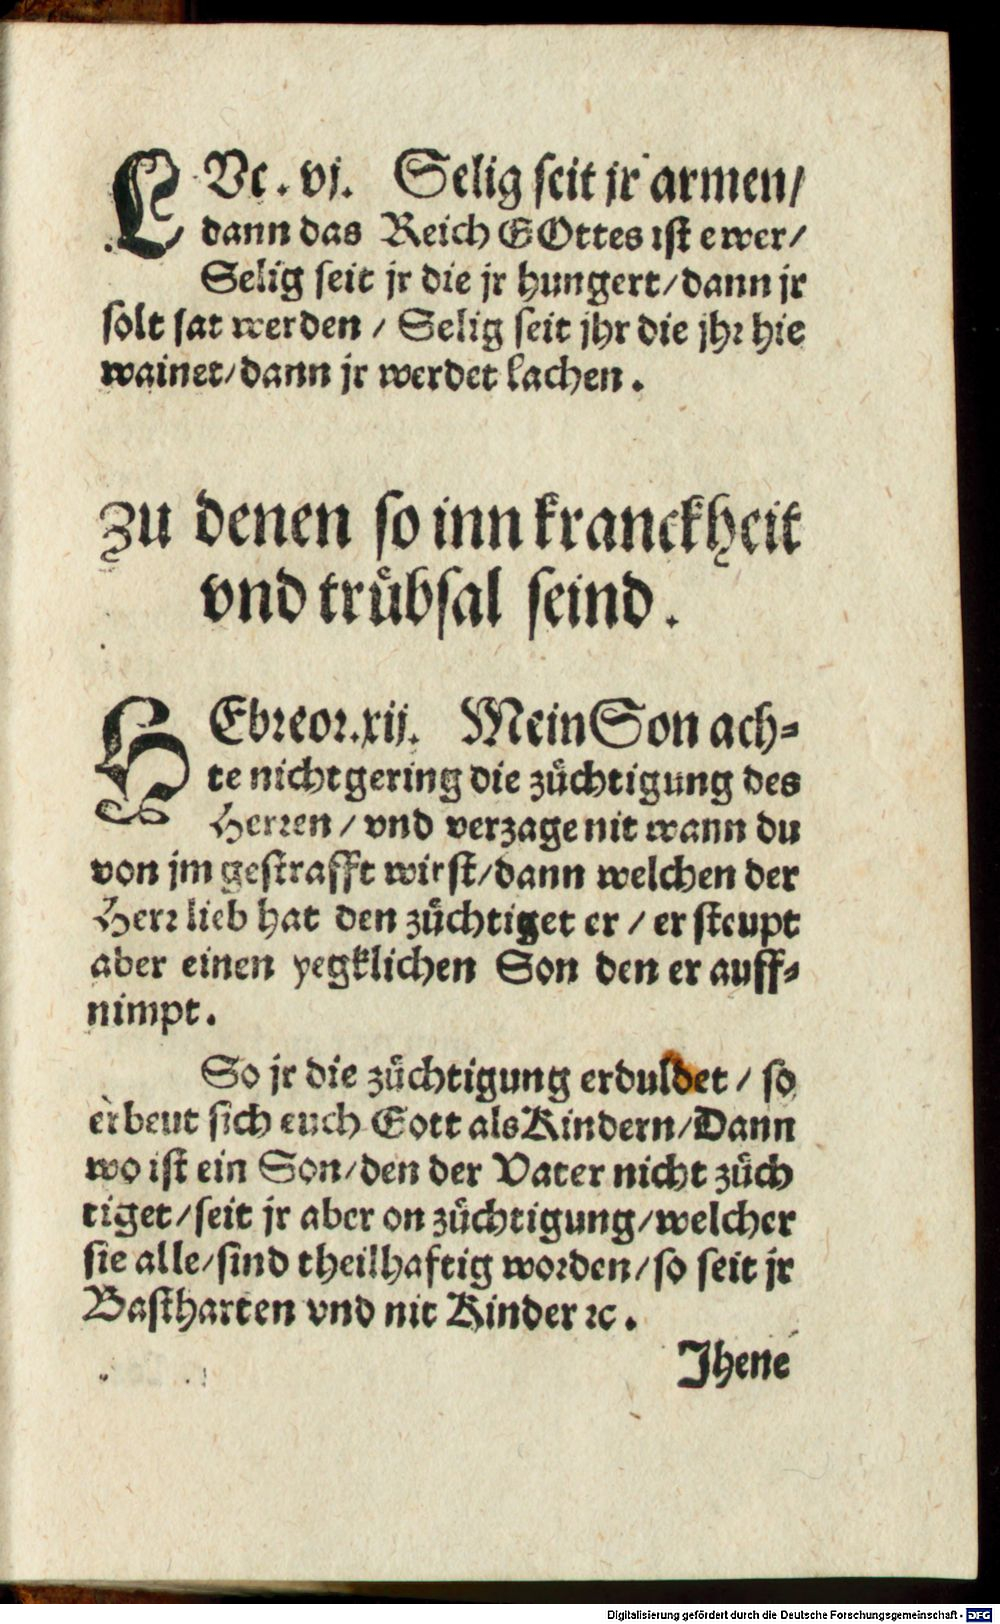 LVc. vj. Selig seit jr armen/
dann das Reich GOttes ist ewer/
Selig seit jr die jr hungert/dann jr
solt sat werden / Selig seit jhr die jhr hie
wainet/dann jr werdet lachen.
Zu denen so inn kranckheit
vnd trůbsal seind.
HEbreor. xij. Mein Son ach-
te nicht gering die zůchtigung des
Herren / vnd verzage nit wann du
von jm gestrafft wirst/dann welchen der
Herr lieb hat den zůchtiget er / er steupt
aber einen yegklichen Son den er auff-
nimpt.
So jr die zůchtigung erduldet / so
erbeut sich euch Gott als Kindern/Dann
wo ist ein Son/den der Vater nicht zůch
tiget/seit jr aber on zůchtigung/welcher
sie alle/sind theilhafftig worden/so seit jr
Bastharten vnd nit Kinder ꝛc.
Jhene
Digitalisierung gefördert durch die Deutsche Forschungsgemeinschaft - DFG